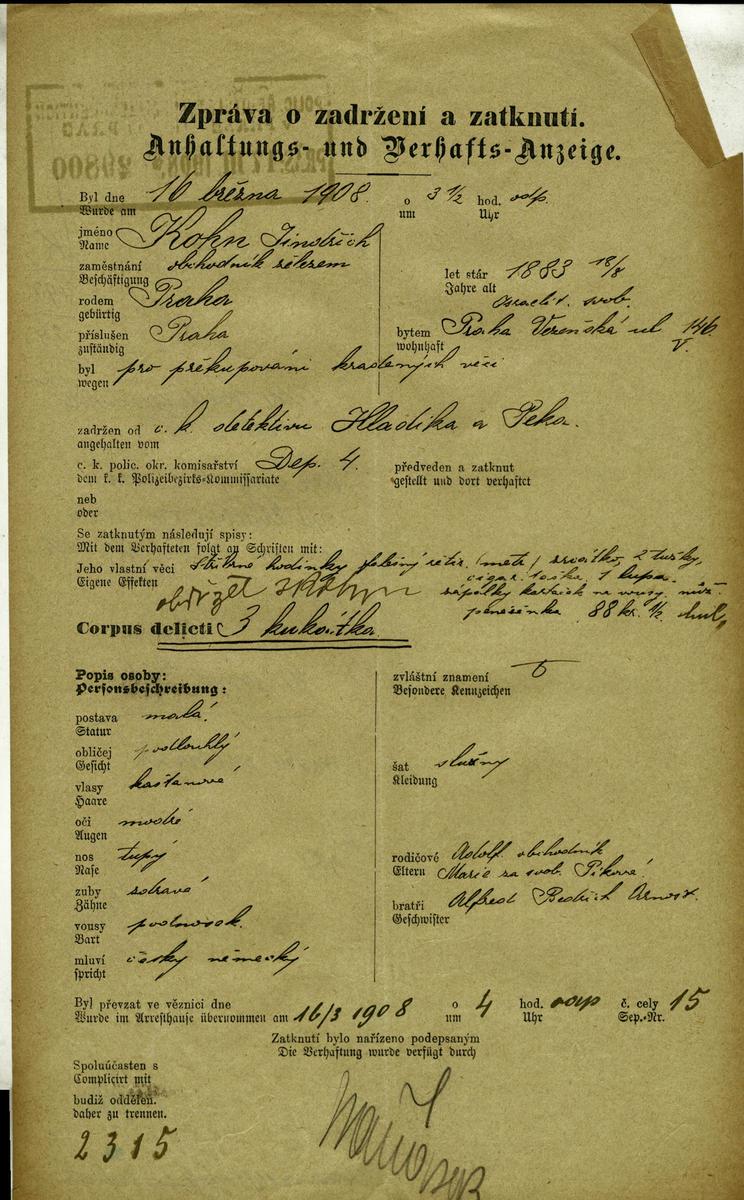 Zpráva o zadržení a zatknutí.
Anhaltungs- und Verhafts-Anzeige.
Byl dne 16 března 1908. o 3 1/2 hod. odp.
Wurde am um Uhr
jméno Kohn Jindřich
Name
zaměstnání obchodník železem
Beschäftigung
let stár 1883 18/8
Jahre alt israelit. svob.
rodem Praha
gebürtig
příslušen Praha
zuständig
bytem Praha Vězeňská ul 146
wohnhaft V.
byl pro překupování kradených věcí
wegen
zadržen od c. k. detektivu Hladíka a Peka.
angehalten vom
c. k. polic. okr. komisařství Dep. 4.
dem k. k. Polizeibezirks-Kommissariate
předveden a zatknut
gestellt und dort verhaftet
neb
oder
Se zatknutým následují spisy:
Mit dem Verhafteten folgt an Schriften mit:
Jeho vlastní věci stříbrné hodinky falešný řetíz. (metr) zrcátko, 2 tužky,
Eigene Effekten cigar. taška, 1 kupa.
zápalky kartáček na vousy, nůž.
obdržel
peněženka 88 kr. 1/2
Corpus delicti 3 kukátka.
Popis osoby:
Personsbeschreibung:
zvláštní znamení
Besondere Kennzeichen
postava malá.
Statur
obličej podlouhlý
Gesicht
šat slušný
Kleidung
vlasy kaštanové
Haare
oči modré
Augen
nos tupý
Nase
rodičové Adolf. obchodník
Eltern Marie za svob. Piková.
zuby zdravé
Zähne
bratři Alfred Bedřich Arnošt.
Geschwister
vousy podnosek.
Bart
mluví česky německy
spricht
Byl převzat ve věznici dne
Wurde im Arresthause übernommen am 16/3 1908 o 4 hod. odp č. cely 15
um Uhr Sep.-Nr.
Zatknutí bylo nařízeno podepsaným
Die Verhaftung wurde verfügt durch
Spoluúčasten s
Complicirt mit
budiž oddělen.
daher zu trennen.
2315